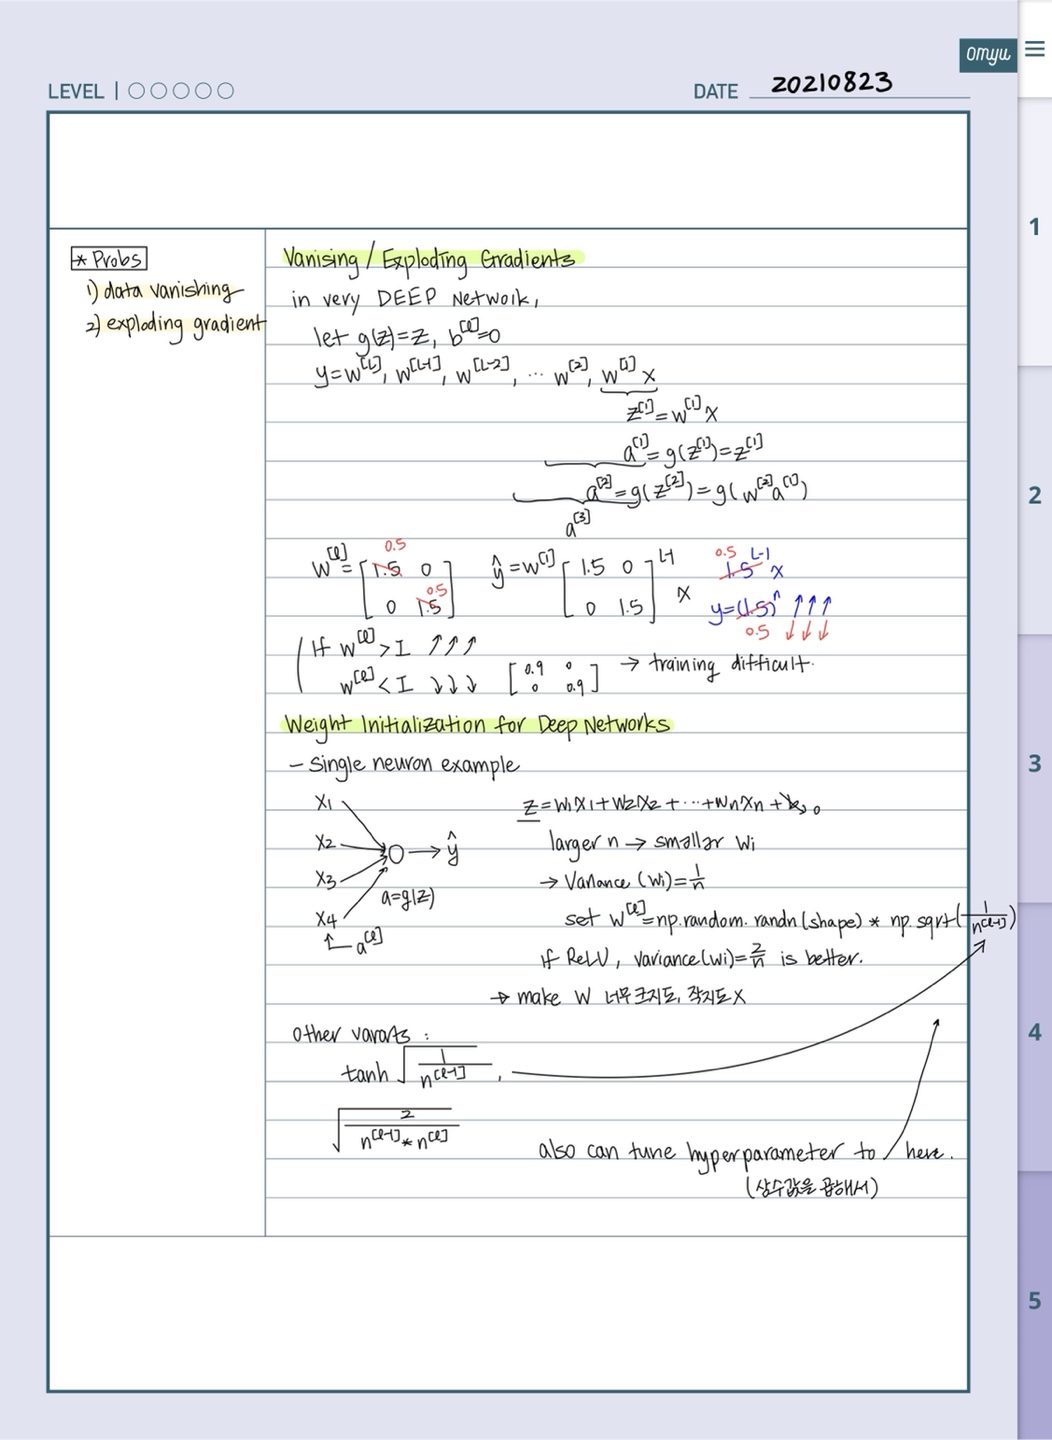 omyu
LEVEL | ○○○○○
DATE 20210823
* Probs
1) data vanishing
2) exploding gradient
Vanising / Exploding Gradients
in very DEEP Network,
let g(z)=z, b^[l]=0
y=w^[L], w^[L-1], w^[L-2], ... w^[2], w^[1] x
z^[1]=w^[1]x
a^[1]=g(z^[1])=z^[1]
a^[2]=g(z^[2])=g(w^[2]a^[1])
a^[3]
w^[l]=[1.5 0 0 1.5] 0.5 0.5 ŷ=w^[1][1.5 0 0 1.5]^L-1 x
0.5 1.5^L-1 x
y=(1.5)^n ↑↑↑
0.5 ↓↓↓
If w^[l] > I ↑↑↑
w^[l] < I ↓↓↓ [0.9 0 0 0.9] → training difficult.
Weight Initialization for Deep Networks
- Single neuron example
x1
x2
x3
x4
→ ŷ
a=g(z)
a^[l]
z=w1x1+w2x2+...+wnxn+b, 0
larger n → smaller wi
→ Variance (wi)=1/n
set w^[l]=np.random.randn(shape) * np.sqrt(1/n^[l-1])
If ReLU, variance(wi)=2/n is better.
→ make W 너무 크지도, 작지도 X
Other vararts :
tanh √(1/n^[l-1]),
√(2/n^[l-1]*n^[l])
also can tune hyperparameter to here.
(상수값을 곱해서)
1
2
3
4
5